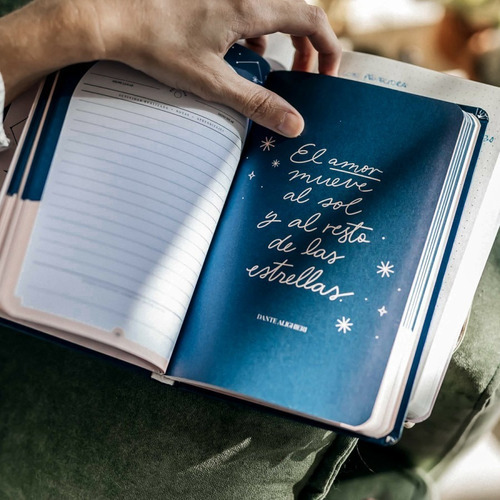 El amor
mueve
al sol
y al resto
de las
estrellas.
DANTE ALIGHIERI